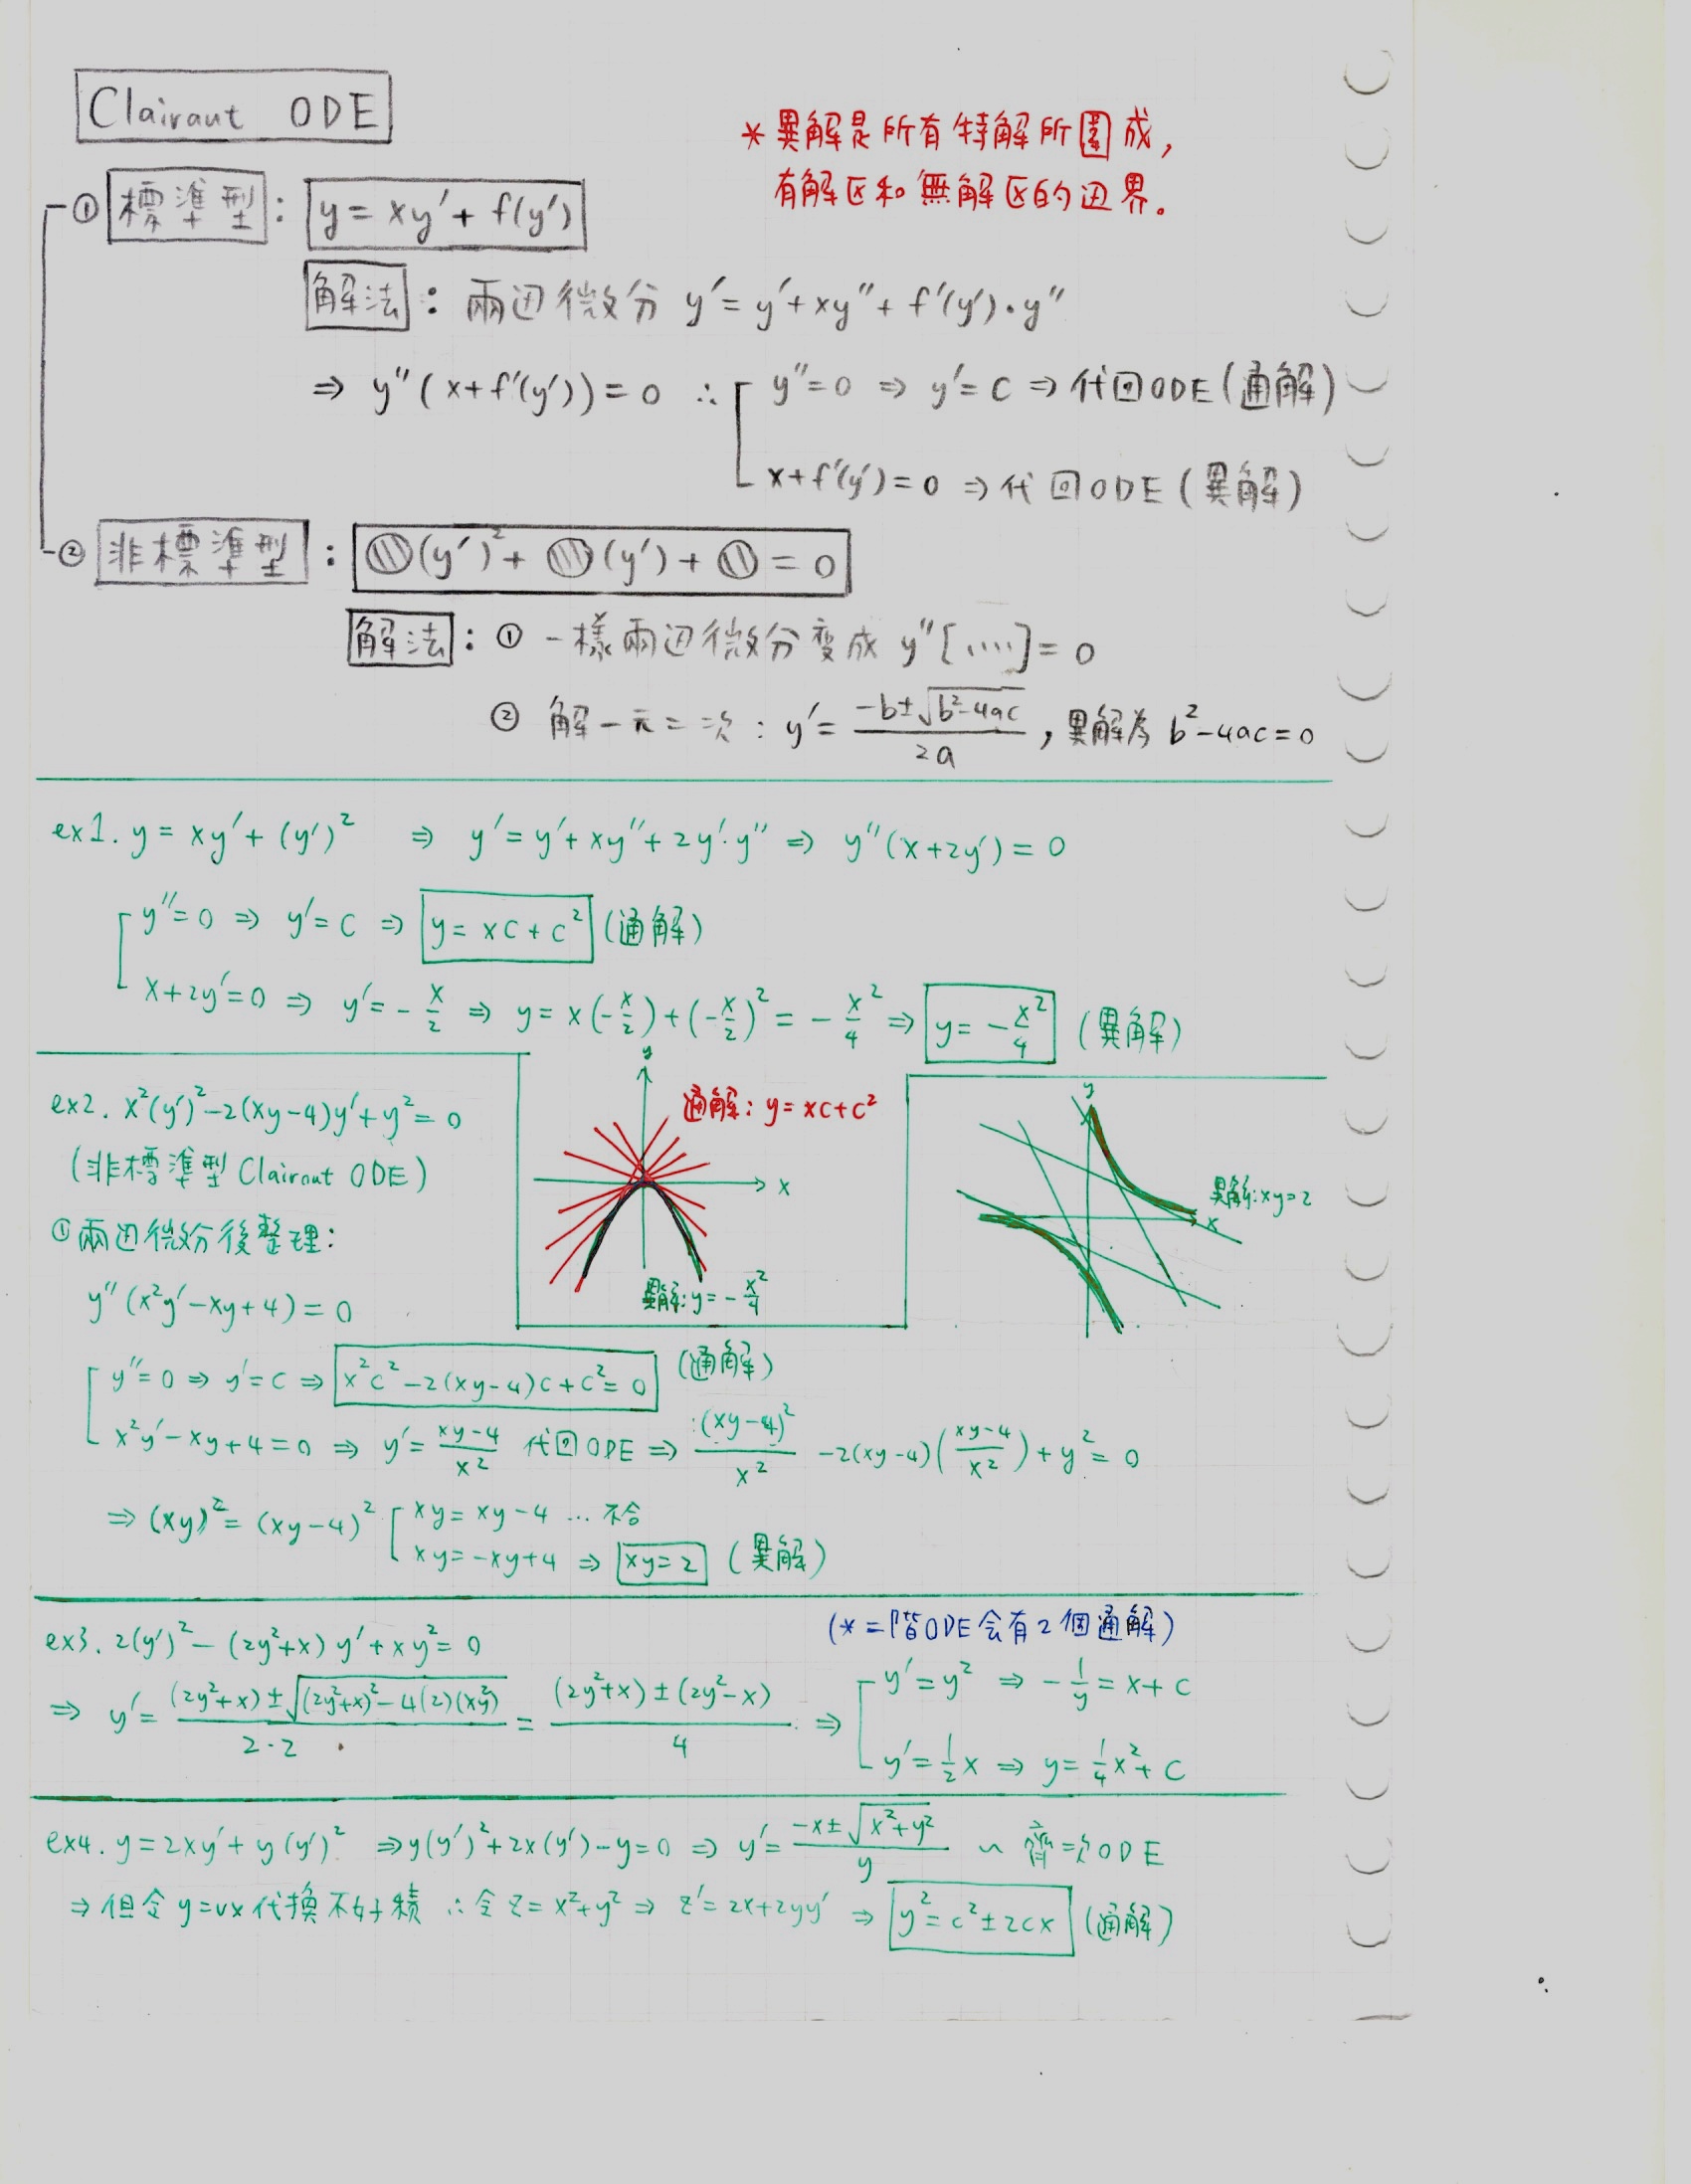 Clairaut ODE
*異解是所有特解所圍成,
有解区和無解区的边界。
① 標準型: y = xy' + f(y')
解法: 兩边微分 y' = y' + xy'' + f'(y')·y''
⇒ y''(x+f'(y')) = 0 ∴ y''=0 ⇒ y'=C ⇒ 代回ODE(通解)
x+f'(y')=0 ⇒ 代回ODE(異解)
② 非標準型: (y')² + (y') + = 0
解法: ① 一樣兩边微分变成 y''[....]=0
② 解一元二次: y' = (-b±√(b²-4ac))/2a, 異解為 b²-4ac=0
ex1. y = xy' + (y')² ⇒ y' = y' + xy'' + 2y'·y'' ⇒ y''(x+2y') = 0
y''=0 ⇒ y'=C ⇒ y = xc + c² (通解)
x+2y'=0 ⇒ y' = -x/2 ⇒ y = x(-x/2)+(-x/2)² = -x²/4 ⇒ y = -x²/4 (異解)
ex2. x²(y')²-2(xy-4)y'+y²=0
(非標準型 Clairaut ODE)
①兩边微分後整理:
y''(x²y'-xy+4)=0
y
通解: y=xc+c²
x
異解: y=-x²/4
y
異解: xy=2
x
y''=0 ⇒ y'=c ⇒ x²c²-2(xy-4)c+c²=0 (通解)
x²y'-xy+4=0 ⇒ y'=(xy-4)/x² 代回ODE ⇒ (xy-4)²/x² -2(xy-4)((xy-4)/x²)+y²=0
⇒ (xy)²=(xy-4)² xy=xy-4 ... 不合
xy=-xy+4 ⇒ xy=2 (異解)
(*二階ODE会有2個通解)
ex3. 2(y')²-(2y²+x)y'+xy²=0
⇒ y'=((2y²+x)±√((2y²+x)²-4(2)(xy²)))/2·2 = ((2y²+x)±(2y²-x))/4 ⇒ y'=y² ⇒ -1/y=x+c
y'=1/2x ⇒ y=1/4x²+C
ex4. y=2xy'+y(y')² ⇒ y(y')²+2x(y')-y=0 ⇒ y'=(-x±√(x²+y²))/y ~ 齊次ODE
⇒ 但令 y=vx 代換不好積 ∴令 z=x²+y² ⇒ z'=2x+2yy' ⇒ y²=c²±2cx (通解)